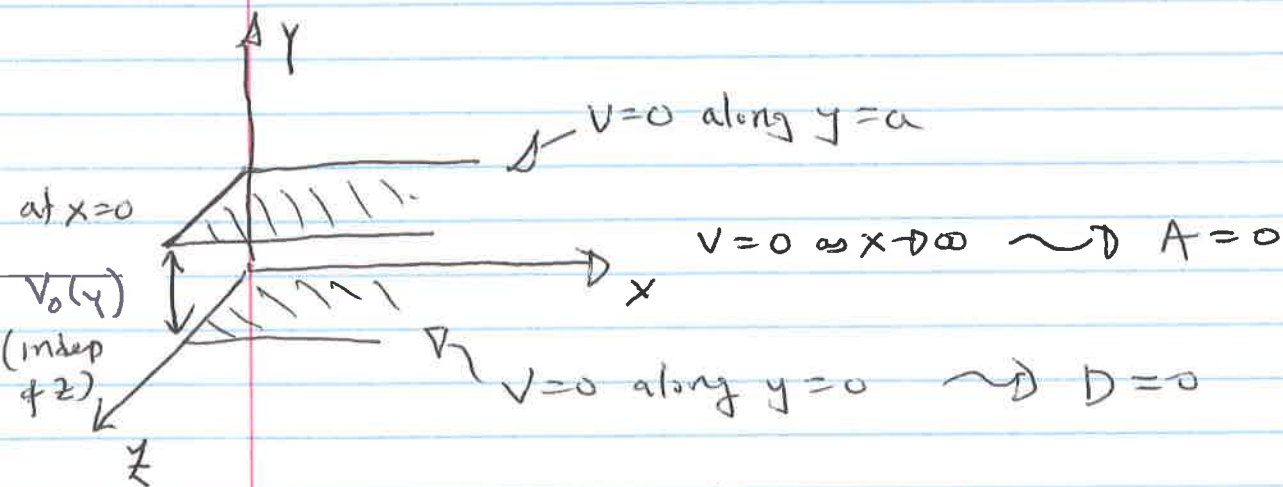 Y
V=0 along y=a
at x=0
V=0 as x→∞ ⇝ A=0
V₀(y)
X
(indep
of z)
V=0 along y=0 ⇝ D=0
Z